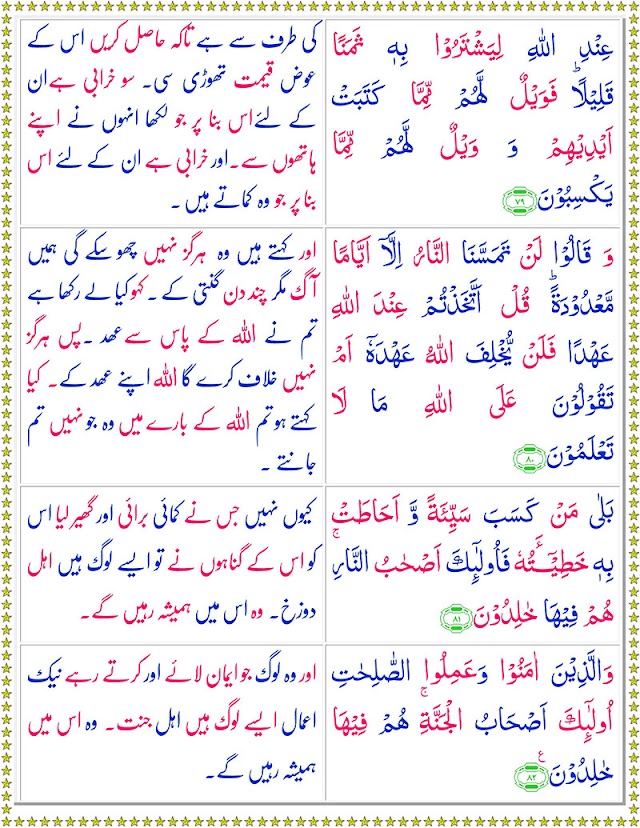 عِنْدِ اللهِ لِيَشْتَرُوْا بِهٖ ثَمَنًا
قَلِيْلًا ؕ فَوَيْلٌ لَّهُمْ مِّمَّا كَتَبَتْ
اَيْدِيْهِمْ وَ وَيْلٌ لَّهُمْ مِّمَّا
يَكْسِبُوْنَ ﴿۷۹﴾
کی طرف سے ہے تاکہ حاصل کریں اس کے
عوض قیمت تھوڑی سی۔ سو خرابی ہے ان
کے لئے اس بنا پر جو لکھا انہوں نے اپنے
ہاتھوں سے۔ اور خرابی ہے ان کے لئے اس
بنا پر جو وہ کماتے ہیں ۔
وَ قَالُوْا لَنْ تَمَسَّنَا النَّارُ اِلَّاۤ اَيَّامًا
مَّعْدُوْدَةً ؕ قُلْ اَتَّخَذْتُمْ عِنْدَ اللهِ
عَهْدًا فَلَنْ يُّخْلِفَ اللهُ عَهْدَهٗۤ اَمْ
تَقُوْلُوْنَ عَلَى اللهِ مَا لَا
تَعْلَمُوْنَ ﴿۸۰﴾
اور کہتے ہیں وہ ہرگز نہیں چھو سکے گی ہمیں
آگ مگر چند دن گنتی کے ۔ کہو کیا لے رکھا ہے
تم نے اللہ کے پاس سے عہد ۔ پس ہرگز
نہیں خلاف کرے گا اللہ اپنے عہد کے۔ کیا
کہتے ہو تم اللہ کے بارے میں وہ جو نہیں تم
جانتے ۔
بَلٰى مَنْ كَسَبَ سَيِّئَةً وَّ اَحَاطَتْ
بِهٖ خَطِيْٓـَٔتُهٗ فَاُولٰٓئِكَ اَصْحٰبُ النَّارِ ۚ
هُمْ فِيْهَا خٰلِدُوْنَ ﴿۸۱﴾
کیوں نہیں جس نے کمائی برائی اور گھیر لیا اس
کو اس کے گناہوں نے تو ایسے لوگ ہیں اہل
دوزخ۔ وہ اس میں ہمیشہ رہیں گے۔
وَالَّذِيْنَ اٰمَنُوْا وَعَمِلُوا الصّٰلِحٰتِ
اُولٰٓئِكَ اَصْحَابُ الْجَنَّةِ ۚ هُمْ فِيْهَا
خٰلِدُوْنَ ع ﴿۸۲﴾
اور وہ لوگ جو ایمان لائے اور کرتے رہے نیک
اعمال ایسے لوگ ہیں اہل جنت۔ وہ اس میں
ہمیشہ رہیں گے۔